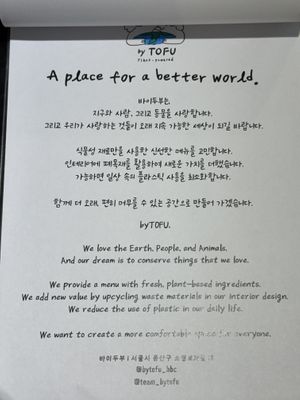 by TOFU
Plant-powered
A place for a better world.
바이두부는,
지구와 사람, 그리고 동물을 사랑합니다.
그리고 우리가 사랑하는 것들이 오래 지속 가능한 세상이 되길 바랍니다.
식물성 재료만을 사용한 신선한 메뉴를 고민합니다.
인테리어에 폐목재를 활용하여 새로운 가치를 더했습니다.
가능하면 일상 속의 플라스틱 사용을 최소화합니다.
함께 더 오래, 편히 머무를 수 있는 공간으로 만들어 가겠습니다.
byTOFU.
We love the Earth, People, and Animals.
And our dream is to conserve things that we love.
We provide a menu with fresh, plant-based ingredients.
We add new value by upcycling waste materials in our interior design.
We reduce the use of plastic in our daily life.
We want to create a more comfortable space for everyone.
바이두부 | 서울시 용산구
@bytofu_hbc
@team_bytofu